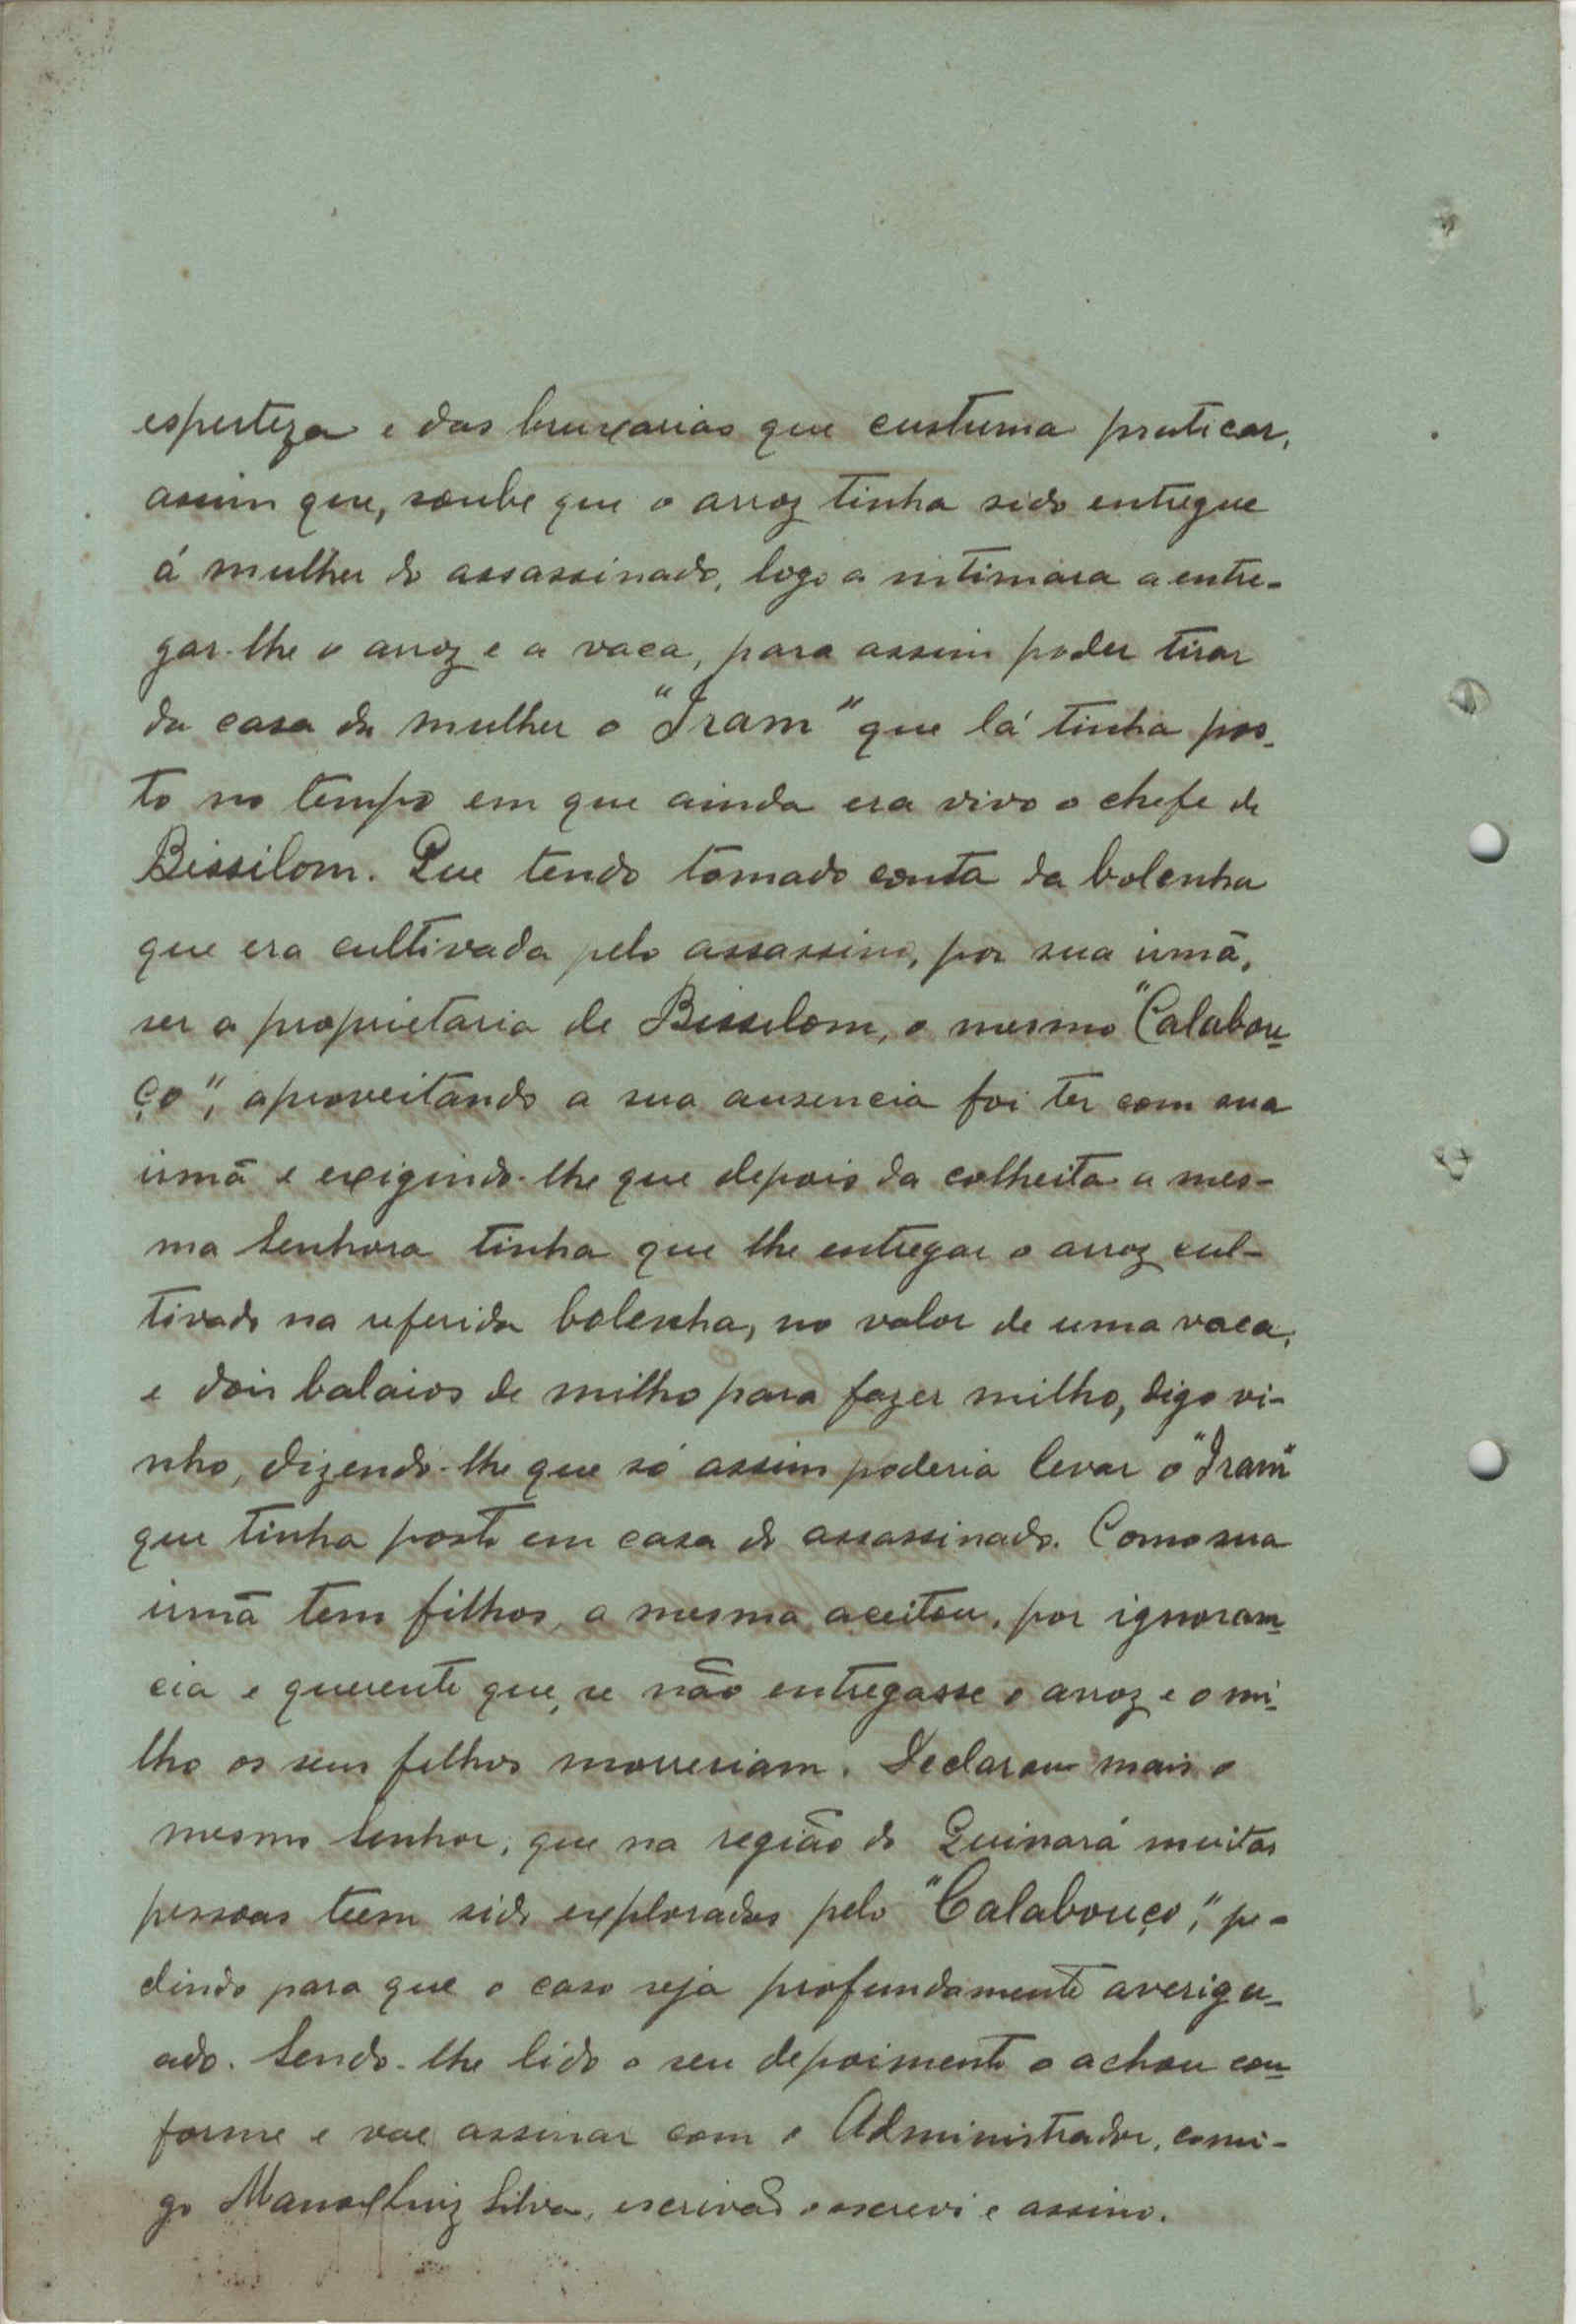 esperteza e das bruxarias que custuma praticar,
assim que, soube que o arroz tinha sido entregue
á mulher do assassinado, logo a intimara a entre-
gar-lhe o arroz e a vaca, para assim poder tirar
da casa da mulher o "Iram" que lá tinha pos-
to no tempo em que ainda era vivo o chefe de
Bissilom. Que tendo tomado conta da bolenha
que era cultivada pelo assassino, por sua irmã,
ser a proprietaria de Bissilom, o mesmo "Calabou-
ço", aproveitando a sua ausencia foi ter com sua
irmã e exigindo-lhe que depois da colheita a mes-
ma Senhora tinha que lhe entregar o arroz cul-
tivado na referida bolenha, no valor de uma vaca,
e dois balaios de milho para fazer milho, digo vi-
nho, dizendo-lhe que só assim poderia levar o "Iram"
que tinha posto em casa do assassinado. Como sua
irmã tem filhos, a mesma aceitou, por ignoran-
cia e que, se não entregasse o arroz e o mi-
lho os seus filhos morreriam. Declarou mais o
mesmo Senhor, que na região do Quinará muitas
pessoas teem sido exploradas pelo "Calabouço", pe-
dindo para que o caso seja profundamente averigu-
ado. Sendo-lhe lido o seu depoimento o achou con-
forme e vae assinar com o Administrador, comi-
go Manoel Luiz Silva, escrivão o escrevi e assino.